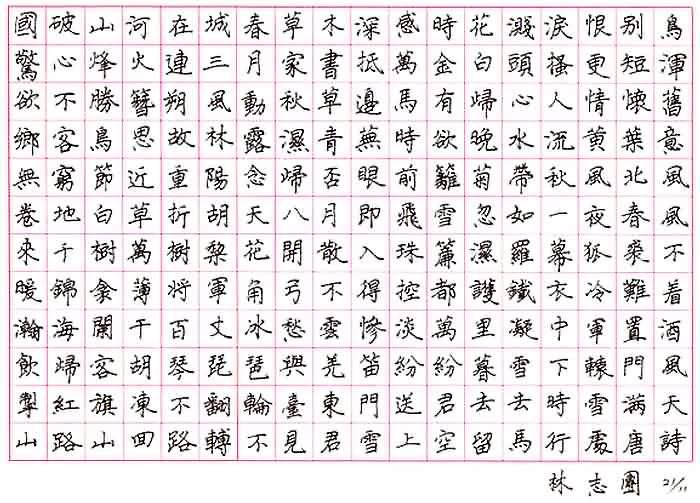 國破山河在城春草木深感時花濺淚恨別鳥
驚心烽火連三月家書抵萬金白頭搔更短渾
欲不勝簪朔風動秋草邊馬有歸心人情懷舊
鄉客鳥思故林露濕青蕪時欲晚水流黃葉意
無窮節近重陽念歸否眼前籬菊帶秋風北風
卷地白草折胡天八月即飛雪忽如一夜春風
來千樹萬樹梨花開散入珠簾濕羅幕狐裘不
暖錦衾薄將軍角弓不得控都護鐵衣冷難着
瀚海闌干百丈冰愁雲慘淡萬里凝中軍置酒
飲歸客胡琴琵琶與羌笛紛紛暮雪下轅門風
掣紅旗凍不翻輪臺東門送君去去時雪滿天
山路山回路轉不見君雪上空留馬行處唐詩
林志團 21/11